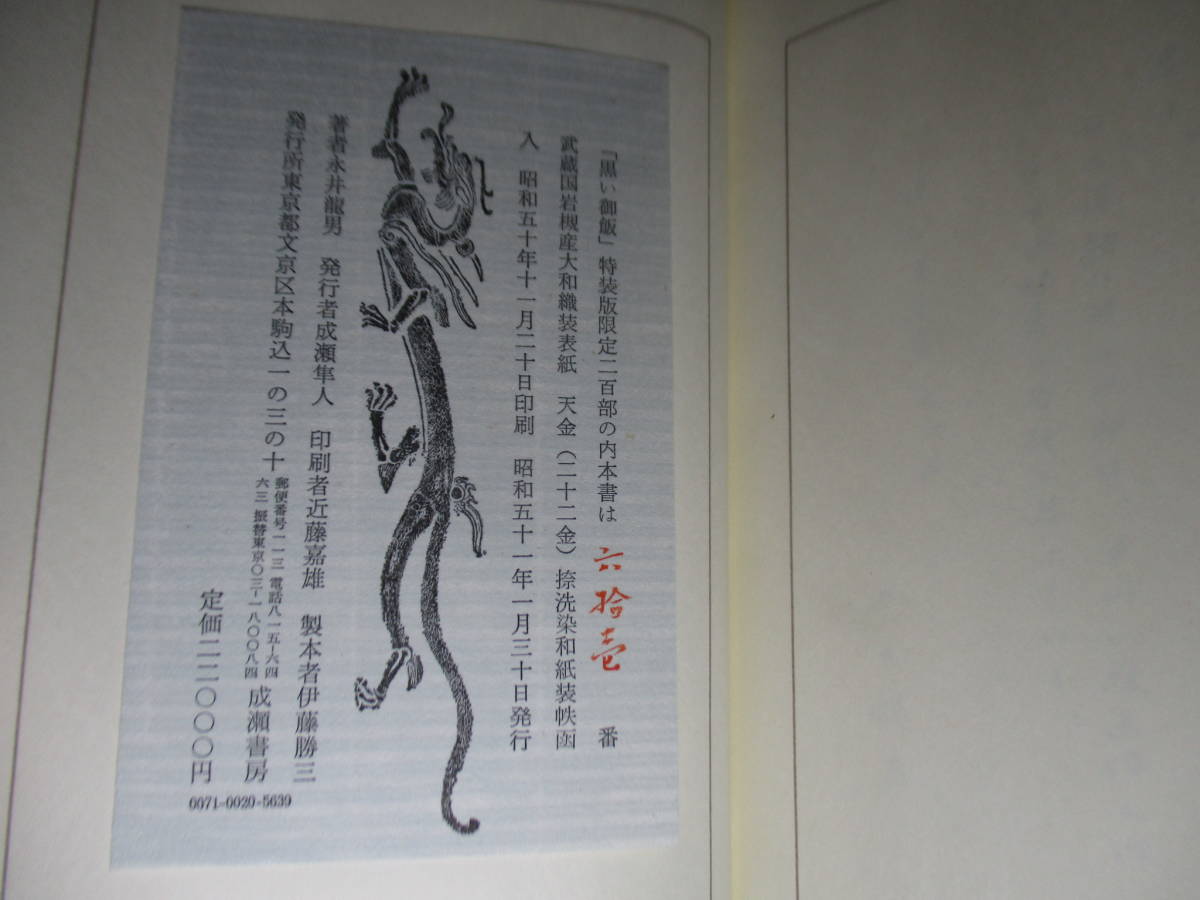 「黒い御飯」特装版限定二百部の内本書は 六拾壱 番
武蔵国岩槻産大和織装表紙 天金(二十二金)捺洗染和紙装帙函
入 昭和五十年十一月二十日印刷 昭和五十一年一月三十日発行
著者永井龍男 発行者成瀬隼人 印刷者近藤嘉雄 製本者伊藤勝三
発行所東京都文京区本駒込一の三の十 郵便番号一一三 電話八一五-六四
六三 振替東京〇三-一八〇〇八四 成瀬書房
定価二二〇〇〇円
0071-0020-5639